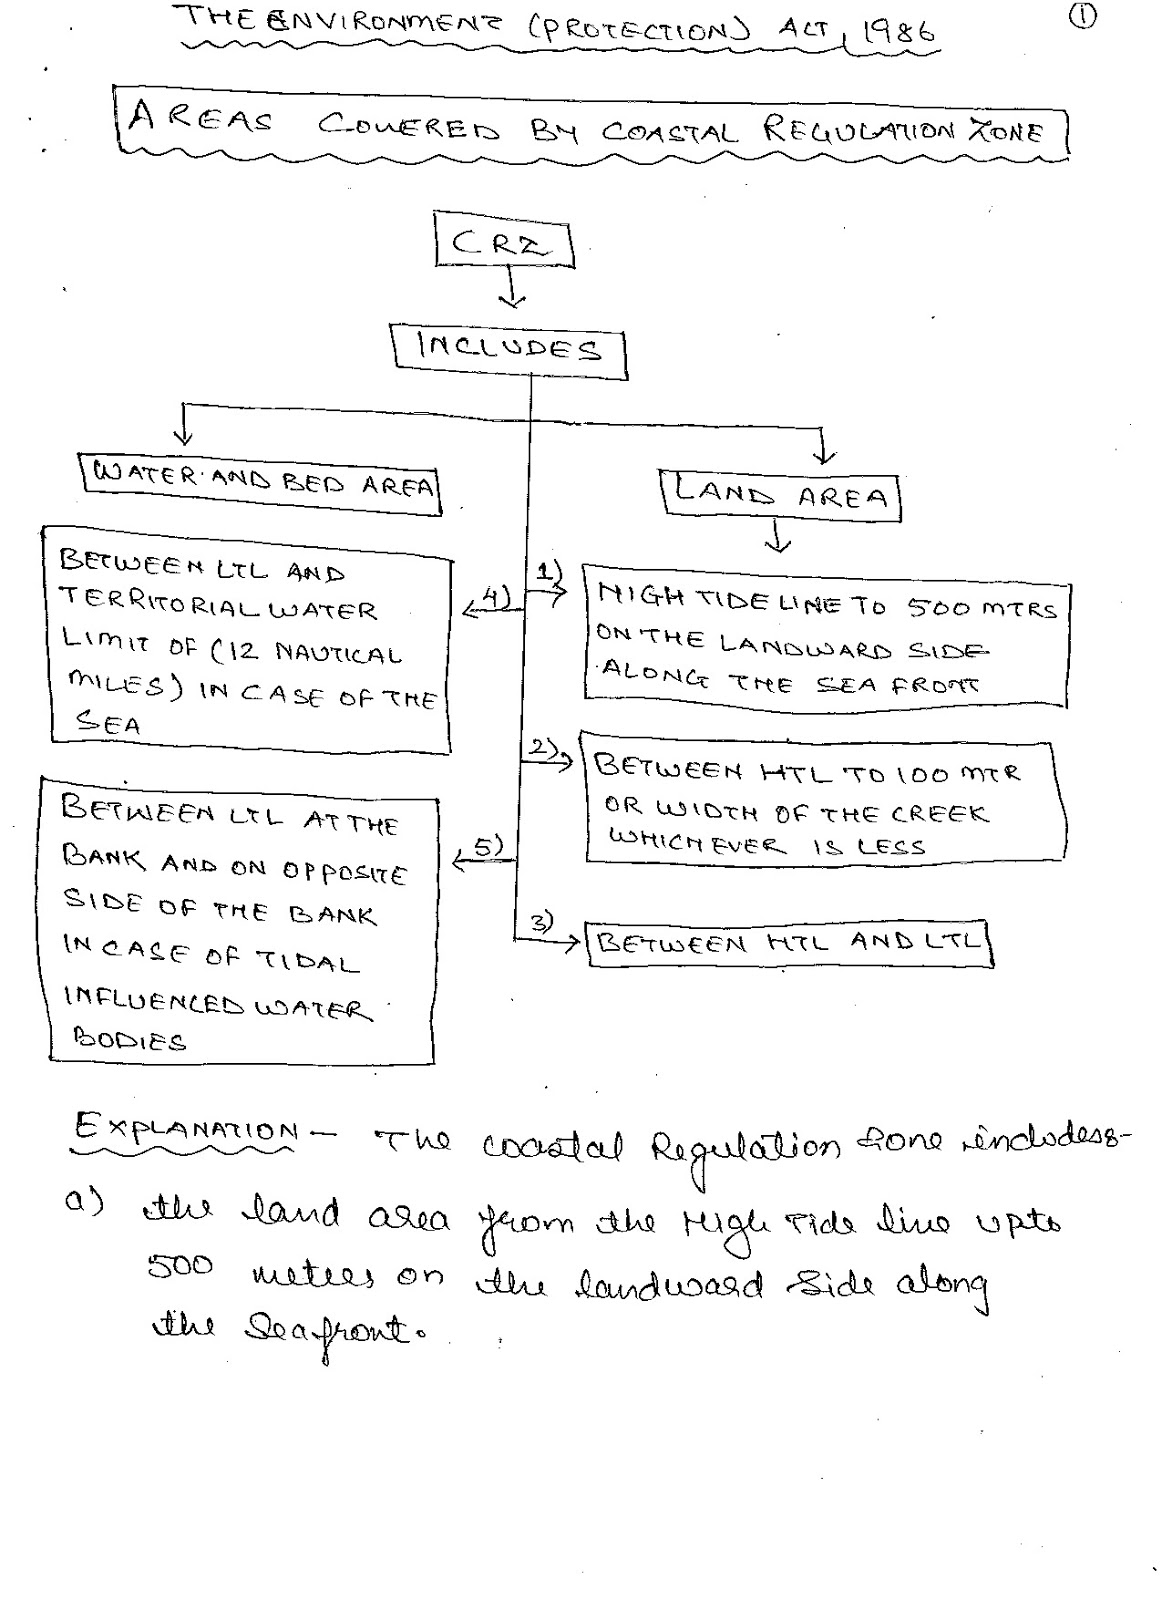 THE ENVIRONMENT (PROTECTION) ACT, 1986
①
AREAS COVERED BY COASTAL REGULATION ZONE
CRZ
INCLUDES
WATER AND BED AREA
LAND AREA
1)
HIGH TIDE LINE TO 500 MTRS
ON THE LANDWARD SIDE
ALONG THE SEA FRONT
4)
BETWEEN LTL AND
TERRITORIAL WATER
LIMIT OF (12 NAUTICAL
MILES) IN CASE OF THE
SEA
2)
BETWEEN HTL TO 100 MTR
OR WIDTH OF THE CREEK
WHICHEVER IS LESS
5)
BETWEEN LTL AT THE
BANK AND ON OPPOSITE
SIDE OF THE BANK
IN CASE OF TIDAL
INFLUENCED WATER
BODIES
3)
BETWEEN HTL AND LTL
EXPLANATION - The coastal Regulation Zone includes-
a) the land area from the High Tide line upto
500 meters on the landward side along
the Seafront.